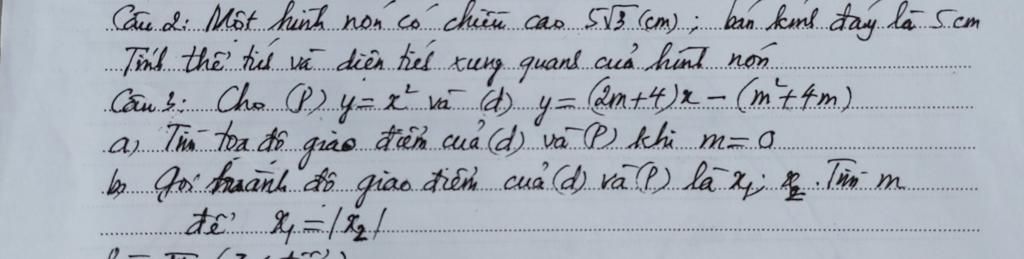 Câu 2: Một hình nón có chiều cao 5√3 (cm); bán kính đáy là 5cm
Tính thể tích và diện tích xung quanh của hình nón
Câu 3: Cho (P) y = x² và (d) y = (2m+4)x - (m²+4m)
a) Tìm tọa độ giao điểm của (d) và (P) khi m = 0
b) Gọi hoành độ giao điểm của (d) và (P) là x₁; x₂. Tìm m
để x₁ = |x₂|